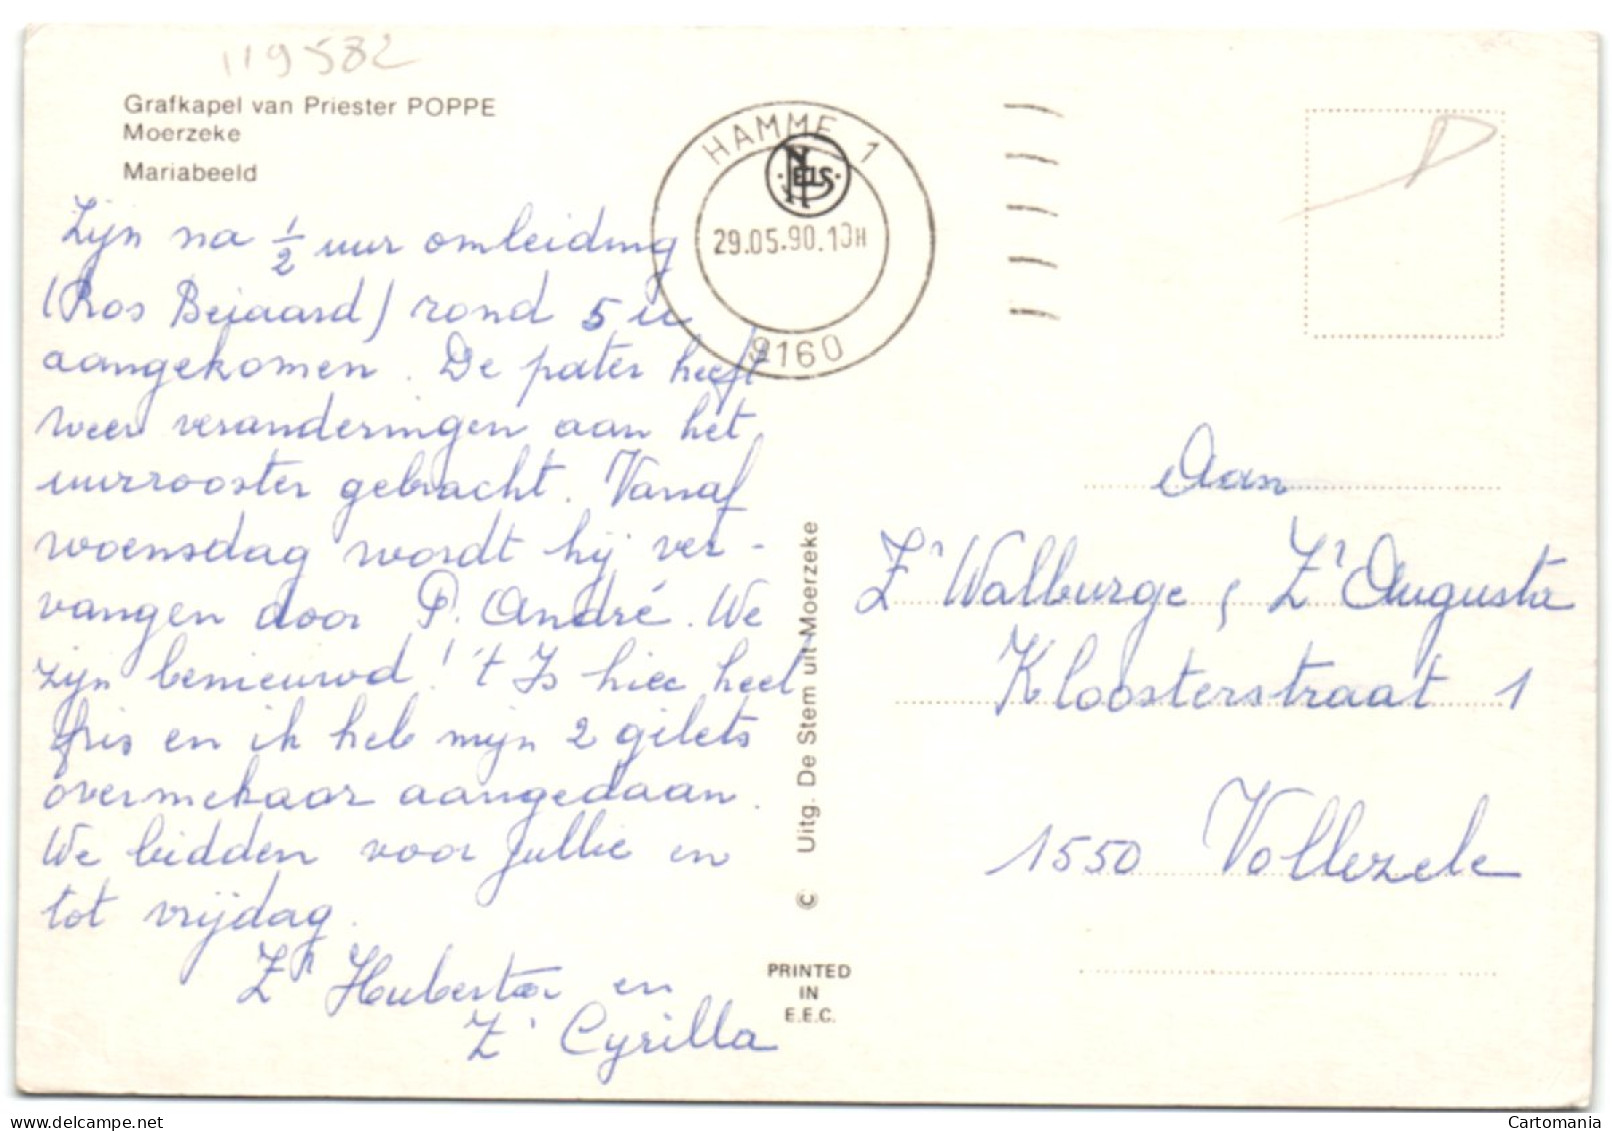 119582
Grafkapel van Priester POPPE
Moerzeke
Mariabeeld
Zijn na 1/2 uur omleiding
(Ros Beiaard) rond 5 u
aangekomen. De pater heeft
weer veranderingen aan het
uurrooster gebracht. Vanaf
woensdag wordt hij ver-
vangen door P. André. We
zijn benieuwd! 't Is hier heel
fris en ik heb mijn 2 gilets
overmekaar aangedaan.
We bidden voor Jullie en
tot vrijdag.
Zr Huberta en
Zr Cyrilla
HAMME 1
NELS
29.05.90.10H
9160
© Uitg. De Stem uit Moerzeke
PRINTED
IN
E.E.C.
Aan
Zr Walburge, Zr Augusta
Kloosterstraat 1
1550 Vollezele
www.delcampe.net
Cartomania